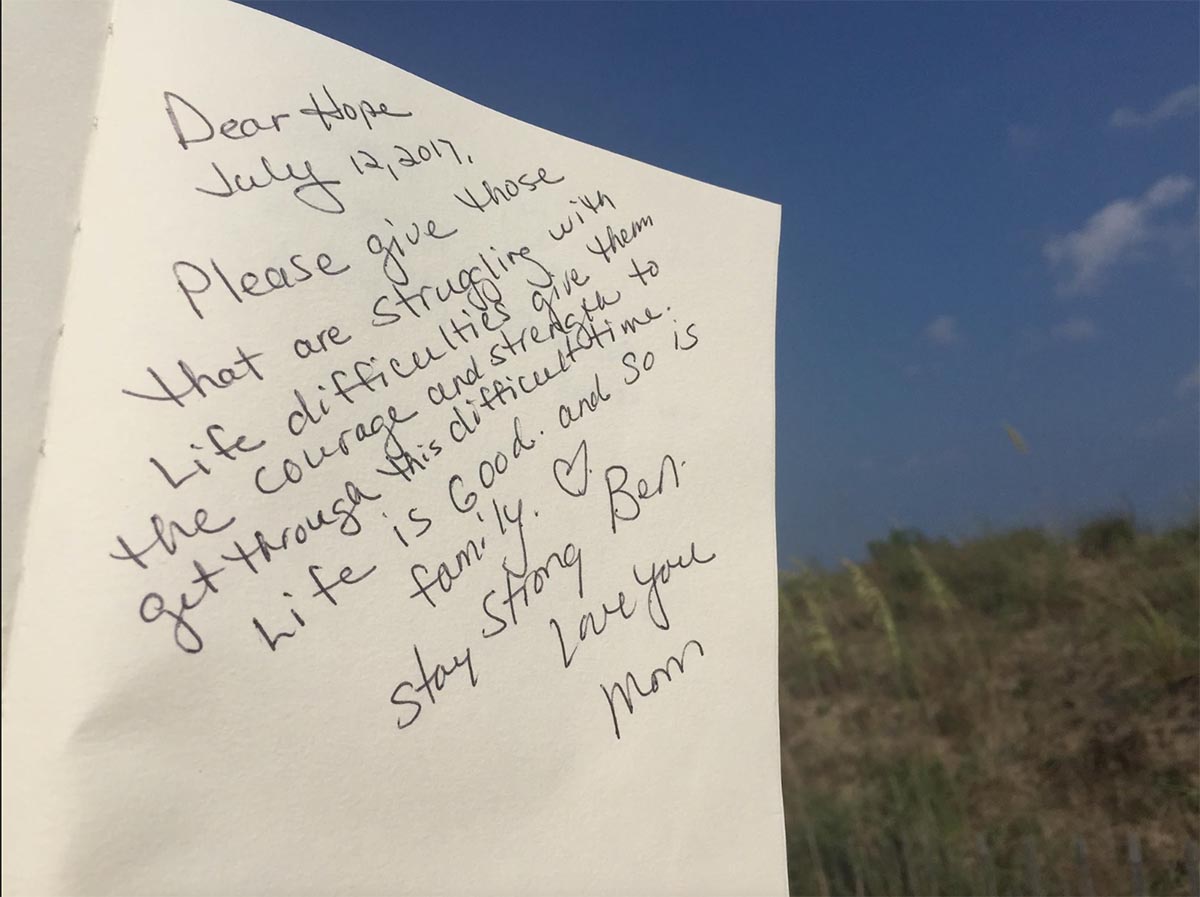 Dear Hope
July 12, 2017.
Please give those
that are struggling with
Life difficulties give them
the courage and strength to
get through this difficult time.
Life is Good. and so is
family. ♡.
Stay strong Ben.
Love you
Mom